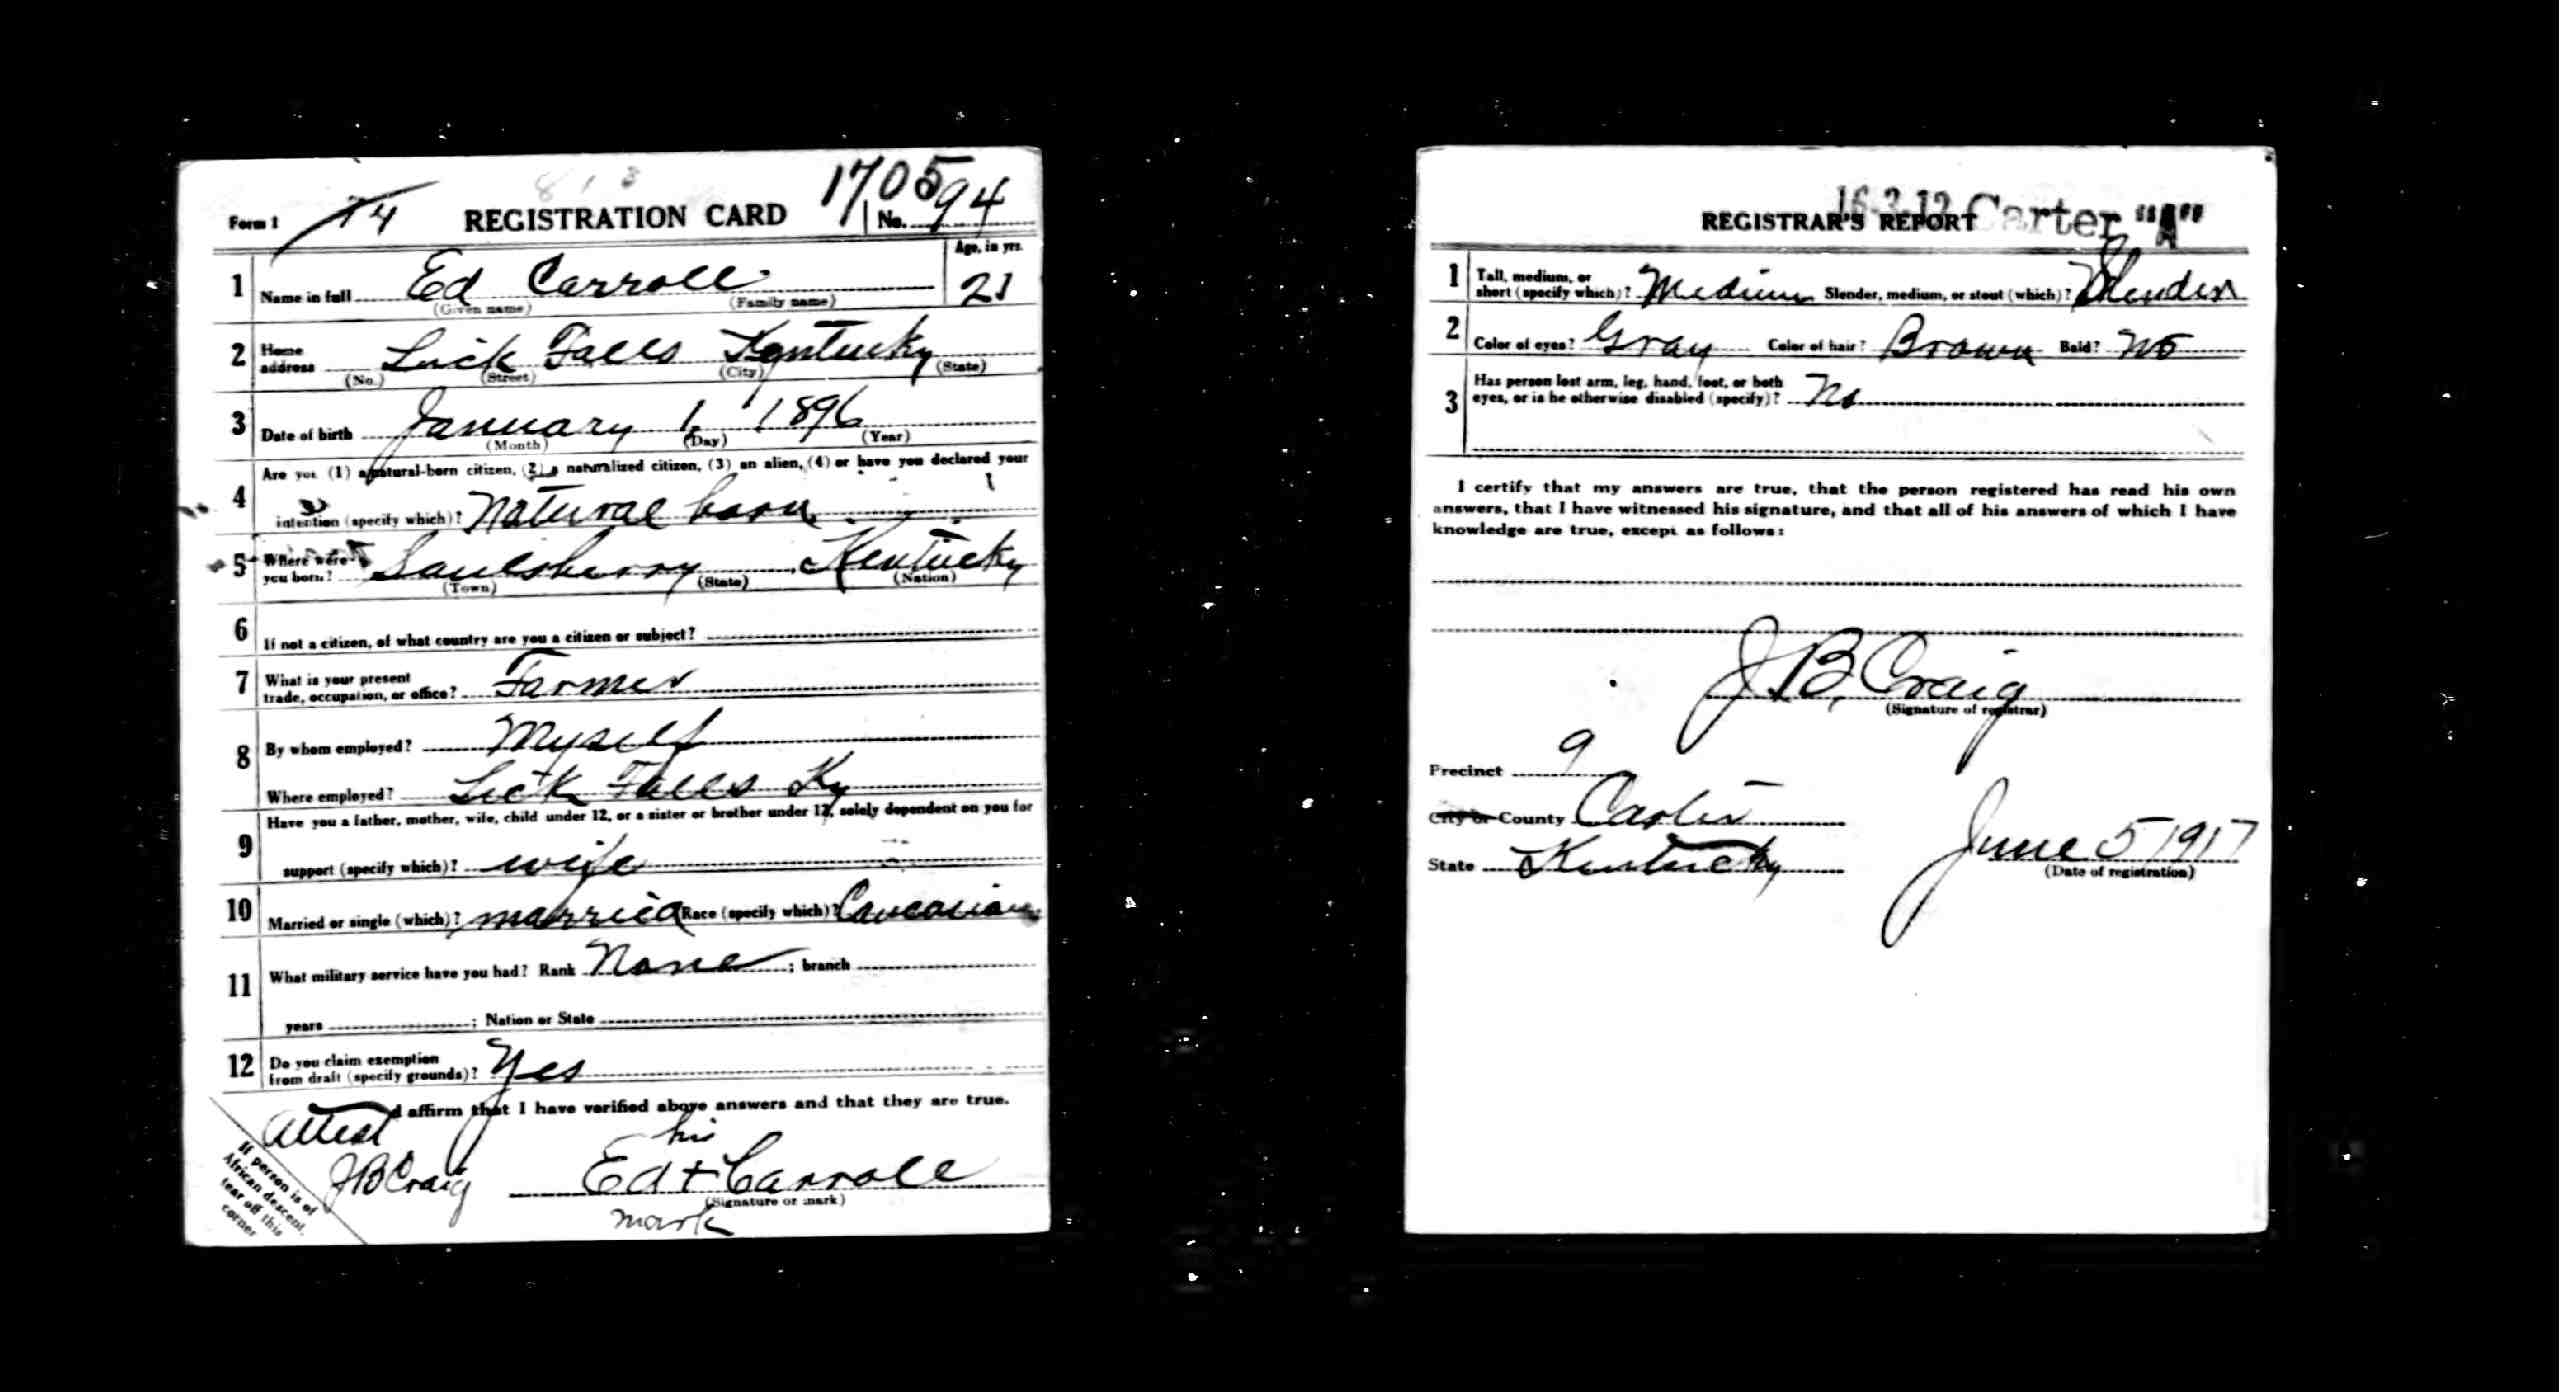 1705
Form 1 74 REGISTRATION CARD No. 94
Age, in yrs.
1 Name in full Ed Carroll 21
(Given name) (Family name)
2 Home address Lick Falls Kentucky
(No.) (Street) (City) (State)
3 Date of birth January 1 1896
(Month) (Day) (Year)
Are you (1) a natural-born citizen, (2) a naturalized citizen, (3) an alien, (4) or have you declared your
4 intention (specify which)? Natural born
5 Where were you born? Saulsberry Kentucky
(Town) (State) (Nation)
6 If not a citizen, of what country are you a citizen or subject?
7 What is your present
trade, occupation, or office? Farmer
8 By whom employed? Myself
Where employed? Lick Falls Ky
Have you a father, mother, wife, child under 12, or a sister or brother under 12, solely dependent on you for
9 support (specify which)? wife
10 Married or single (which)? married Race (specify which)? Caucasian
11 What military service have you had? Rank None ; branch
years ; Nation or State
12 Do you claim exemption
from draft (specify grounds)? Yes
affirm that I have verified above answers and that they are true.
Attest
his
J B Craig Ed + Carroll
(Signature or mark)
mark
If person is of
African descent,
tear off this
corner
16-3-12 Carter "A"
REGISTRAR'S REPORT
1 Tall, medium, or
short (specify which)? Medium Slender, medium, or stout (which)? Slender
2 Color of eyes? Gray Color of hair? Brown Bald? No
3 Has person lost arm, leg, hand, foot, or both
eyes, or is he otherwise disabled (specify)? No
I certify that my answers are true, that the person registered has read his own
answers, that I have witnessed his signature, and that all of his answers of which I have
knowledge are true, except as follows:
J. B. Craig
(Signature of registrar)
Precinct 9
City or County Carter
State Kentucky June 5 1917
(Date of registration)